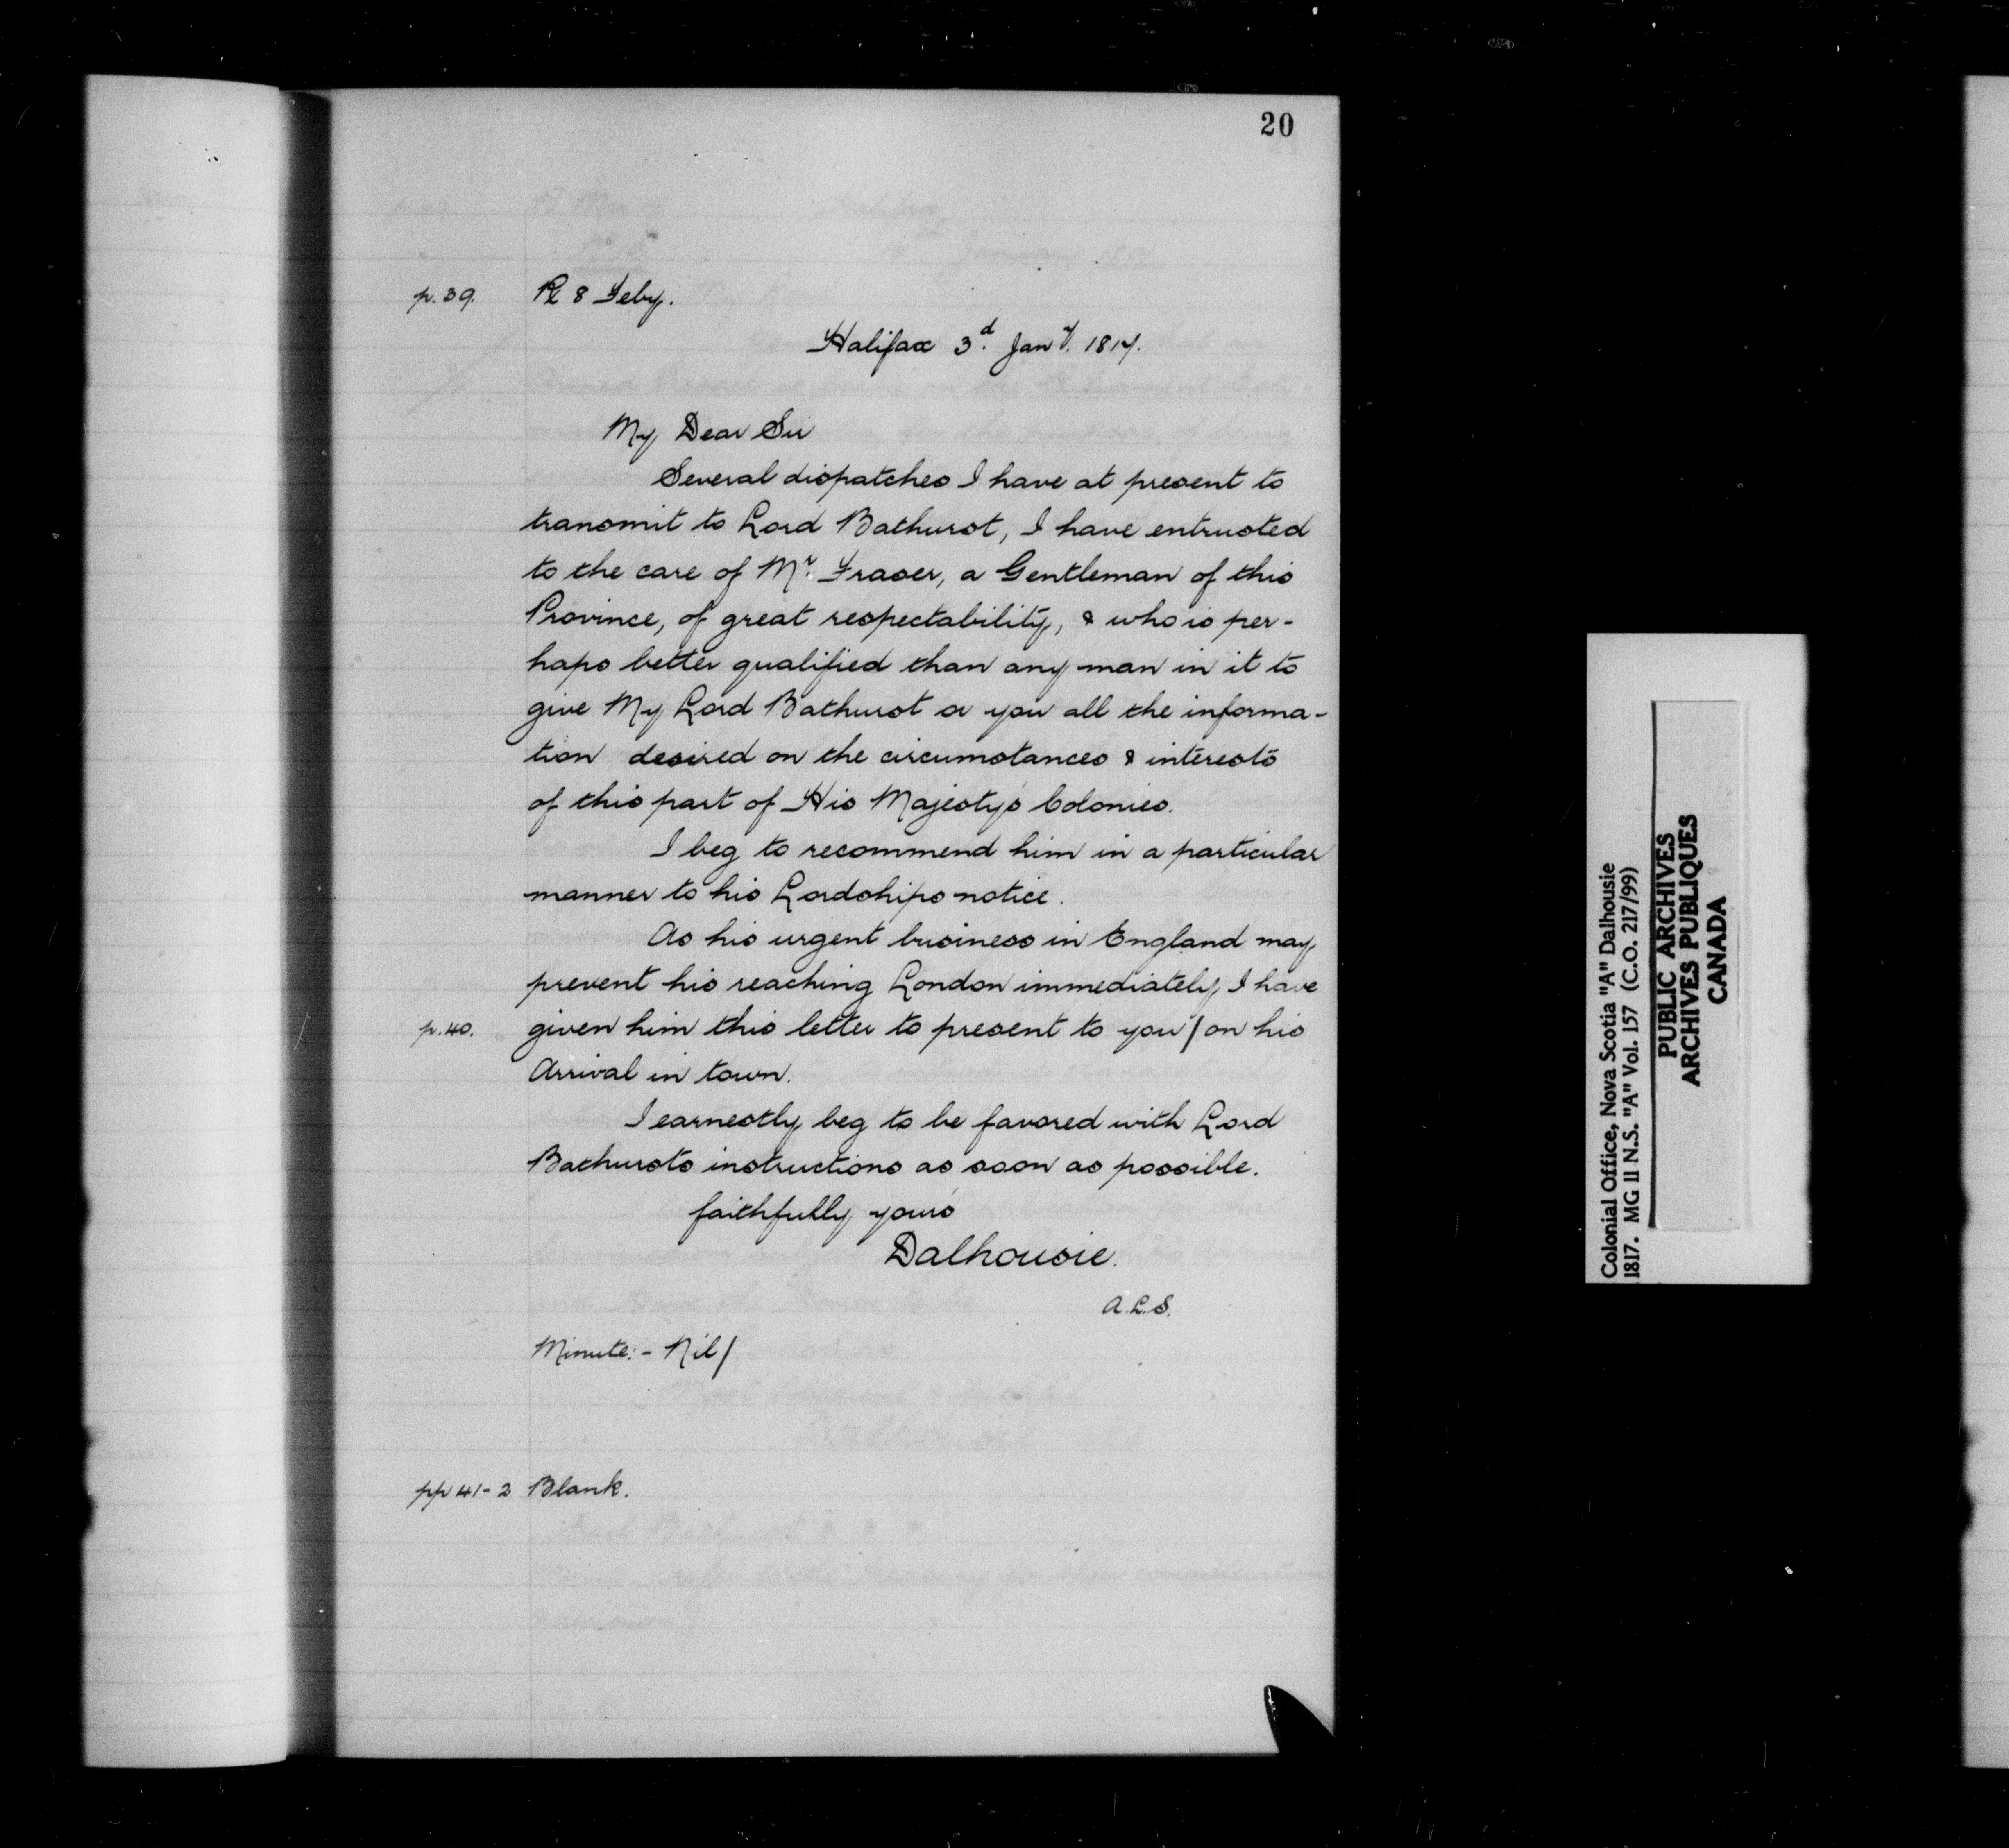 20
p. 39. R 8 Feby.
Halifax 3d. Jany. 1817.
My Dear Sir
Several dispatches I have at present to
transmit to Lord Bathurst, I have entrusted
to the care of Mr. Fraser, a Gentleman of this
Province, of great respectability, & who is per-
haps better qualified than any man in it to
give My Lord Bathurst or you all the informa-
tion desired on the circumstances & interests
of this part of His Majesty's Colonies.
I beg to recommend him in a particular
manner to his Lordships notice.
As his urgent business in England may
prevent his reaching London immediately, I have
p. 40. given him this letter to present to you / on his
Arrival in town.
I earnestly beg to be favored with Lord
Bathursts instructions as soon as possible.
faithfully yours
Dalhousie.
A.L.S.
Minute:- Nil/
pp 41-2 Blank.
Colonial Office, Nova Scotia "A" Dalhousie
1817. MG 11 N.S. "A" Vol. 157 (C.O. 217/99)
PUBLIC ARCHIVES
ARCHIVES PUBLIQUES
CANADA